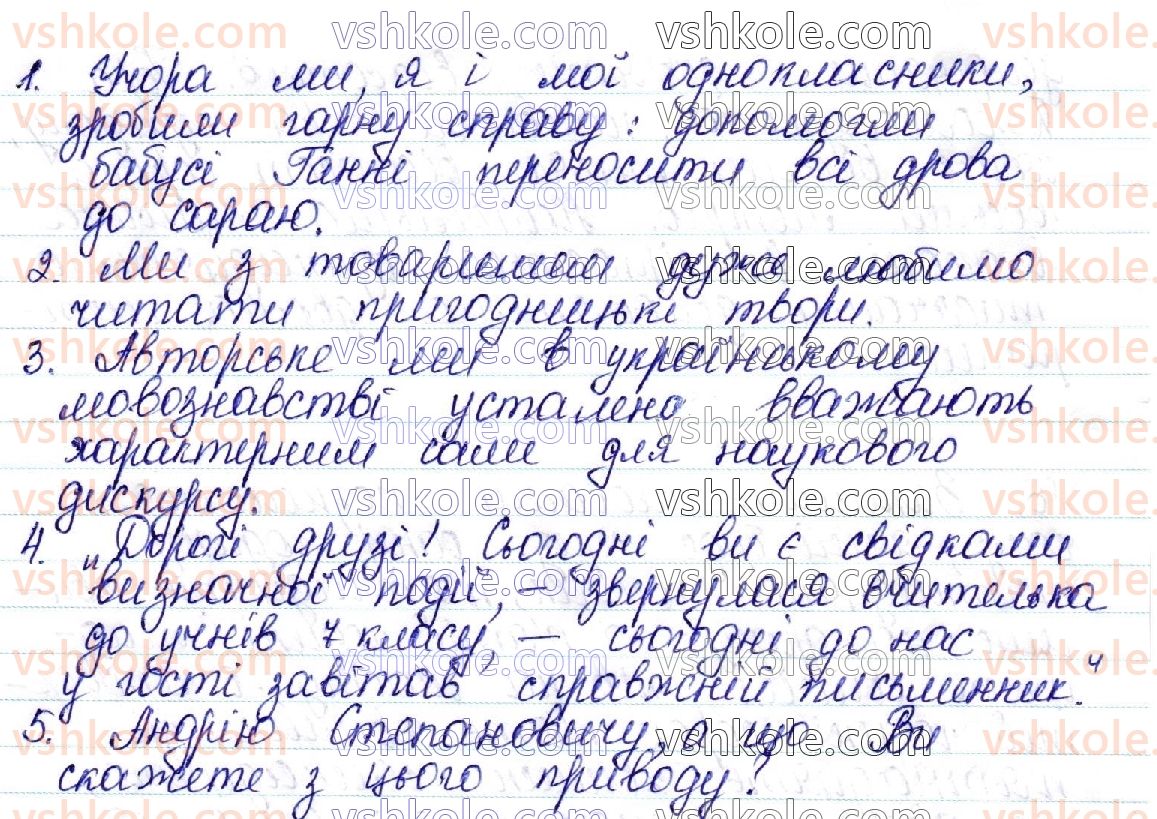 1. Учора ми, я і мої однокласники,
зробили гарну справу: допомогли
бабусі Ганні переносити всі дрова
до сараю.
2. Ми з товаришами дуже любимо
читати пригодницькі твори.
3. Авторське ми в українському
мовознавстві усталено вважають
характерним саме для наукового
дискурсу.
4. „Дорогі друзі! Сьогодні ви є свідками
визначної події, — звернулася вчителька
до учнів 7 класу, — сьогодні до нас
у гості завітав справжній письменник."
5. Андрію Степановичу, а що Ви
скажете з цього приводу?